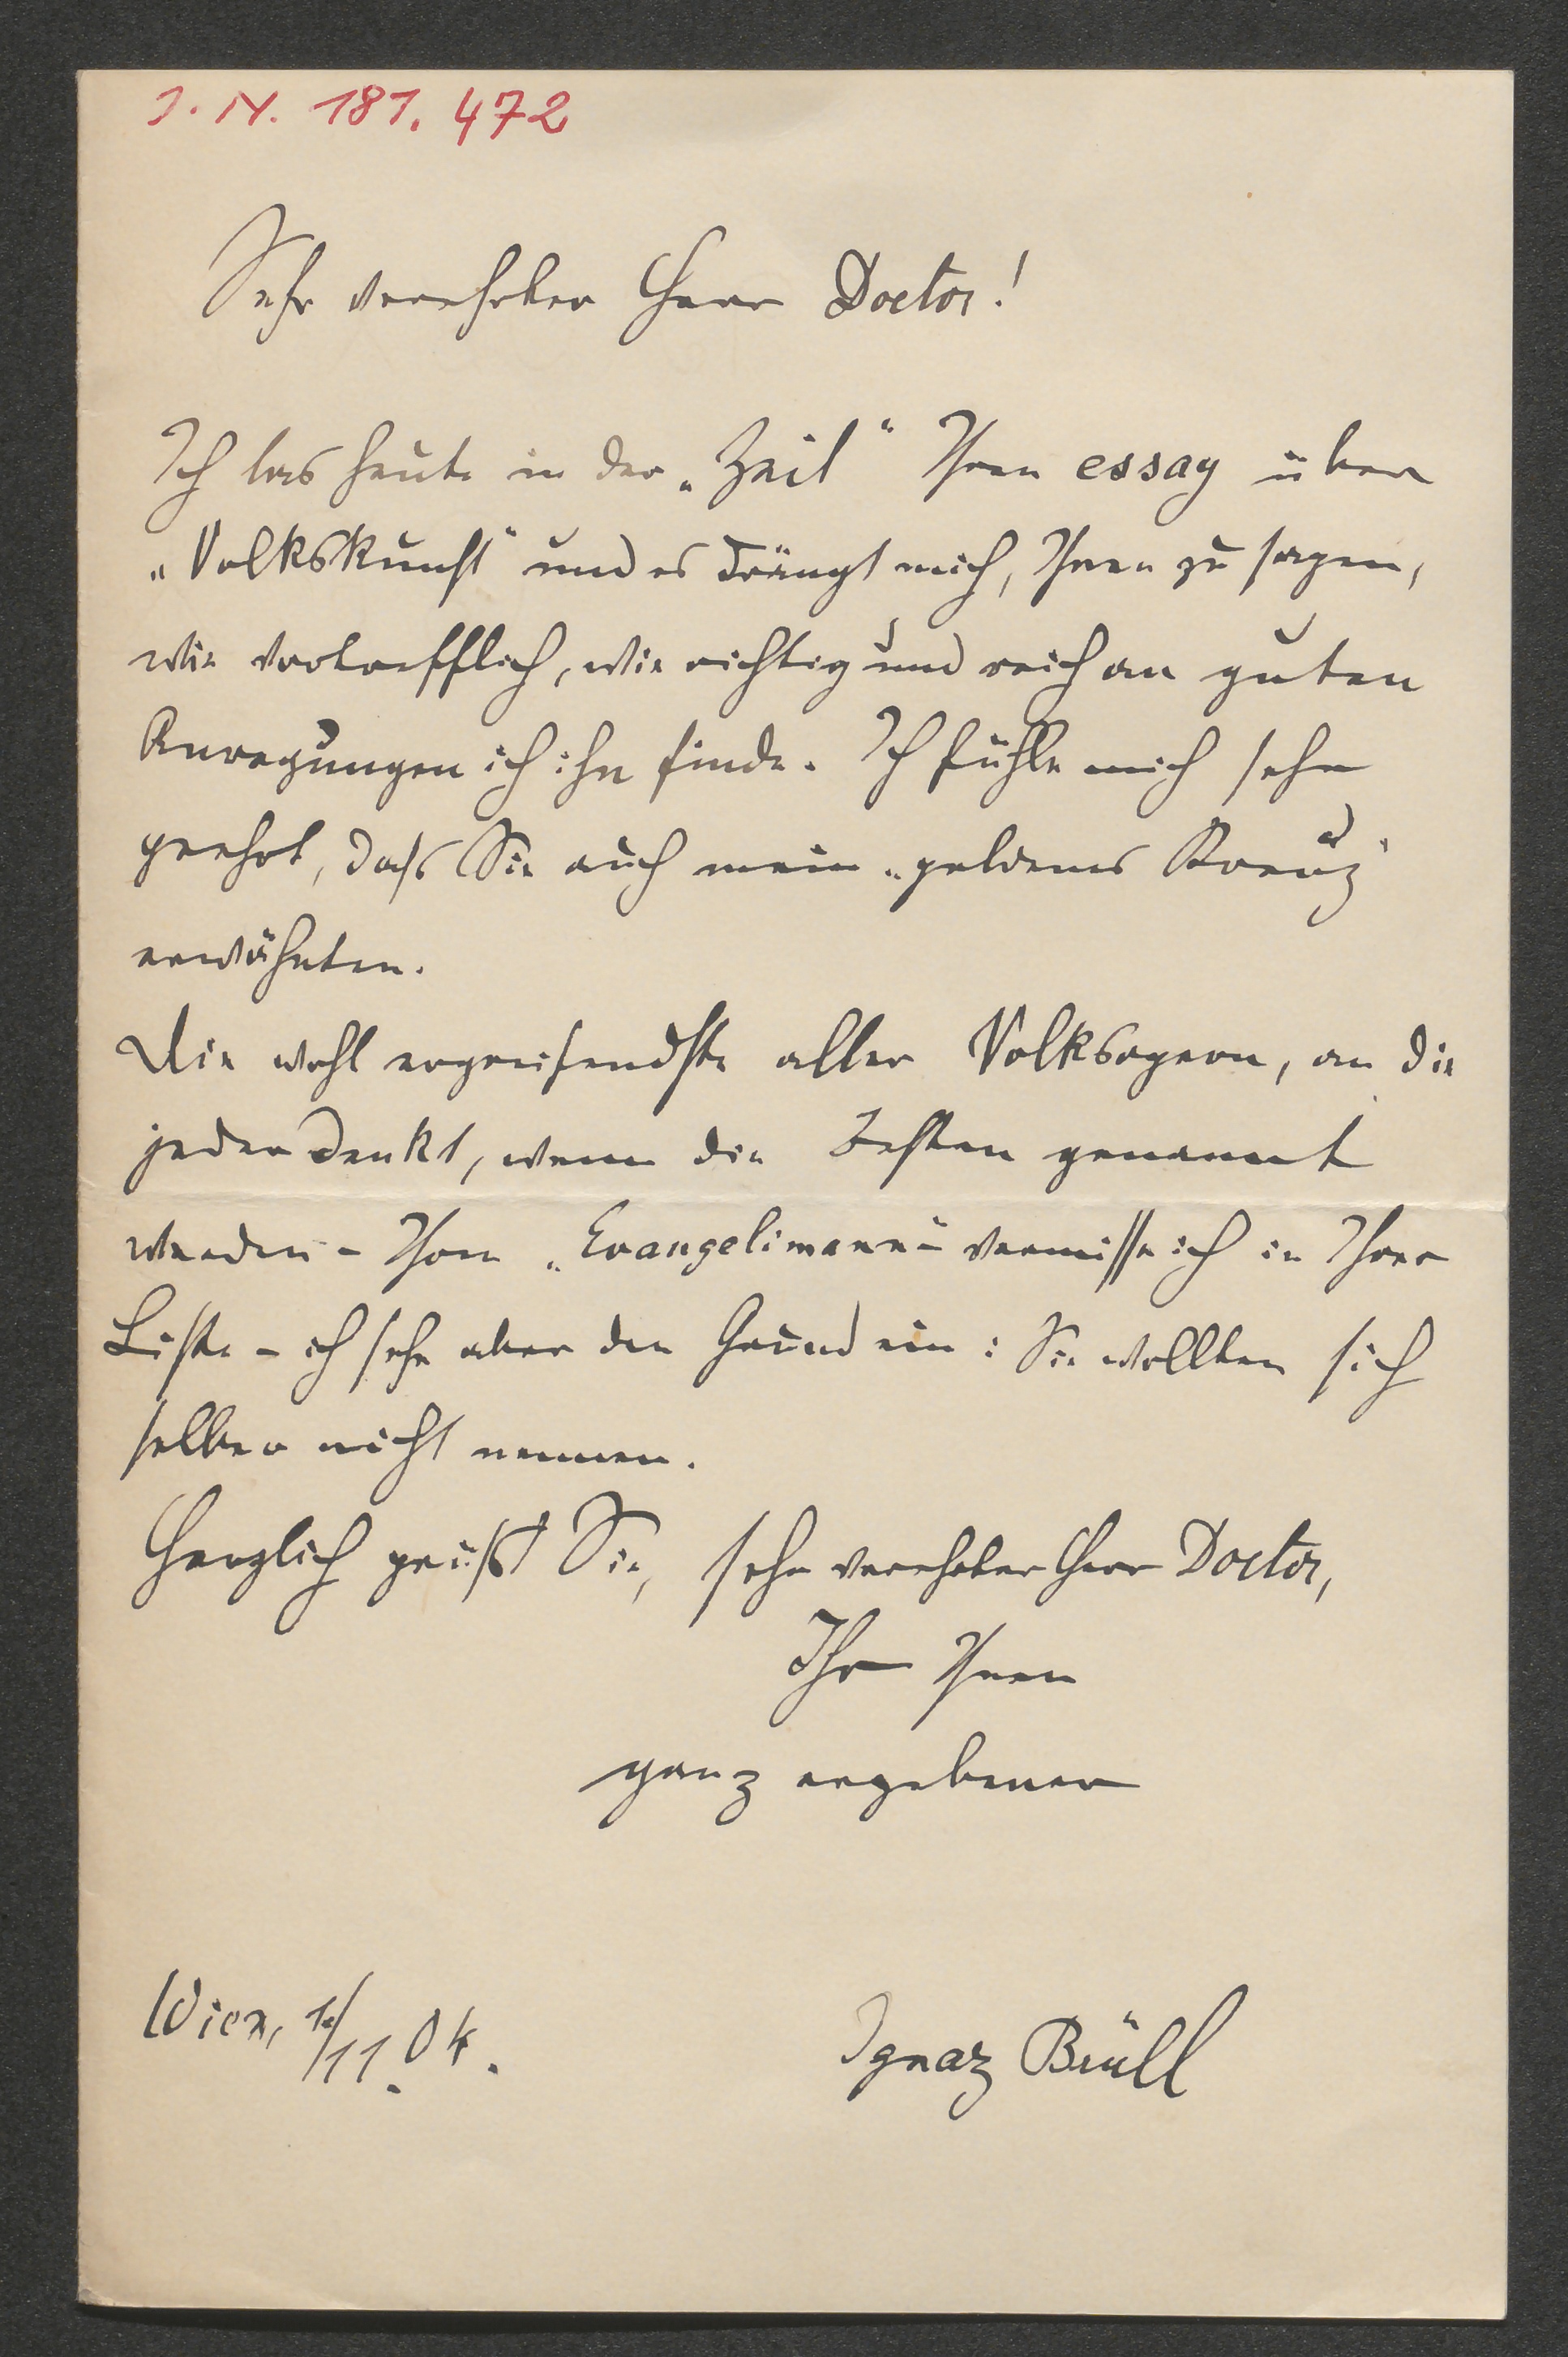 I. N. 181. 472
Sehr verehrter Herr Doctor!
Ich las heute in der „Zeit“ Ihren essay über
„Volkskunst“ und es drängt mich, Ihnen zu sagen,
wie vortrefflich, wie richtig und reich an guten
Anregungen ich ihn finde. Ich fühle mich sehr
geehrt, dass Sie auch mein „goldenes Kreuz“
erwähnten.
Die wohl ergreifendste aller Volksopern, an die
jeder denkt, wenn die Besten genannt
werden – Ihren „Evangelimann“ – vermisse ich in Ihrer
Liste – ich sehe aber den Grund ein: Sie wollten sich
selber nicht nennen.
Herzlich grüßt Sie, sehr verehrter Herr Doctor,
Ihr Ihnen
ganz ergebener
Wien, 1./11. 04.
Ignaz Brüll